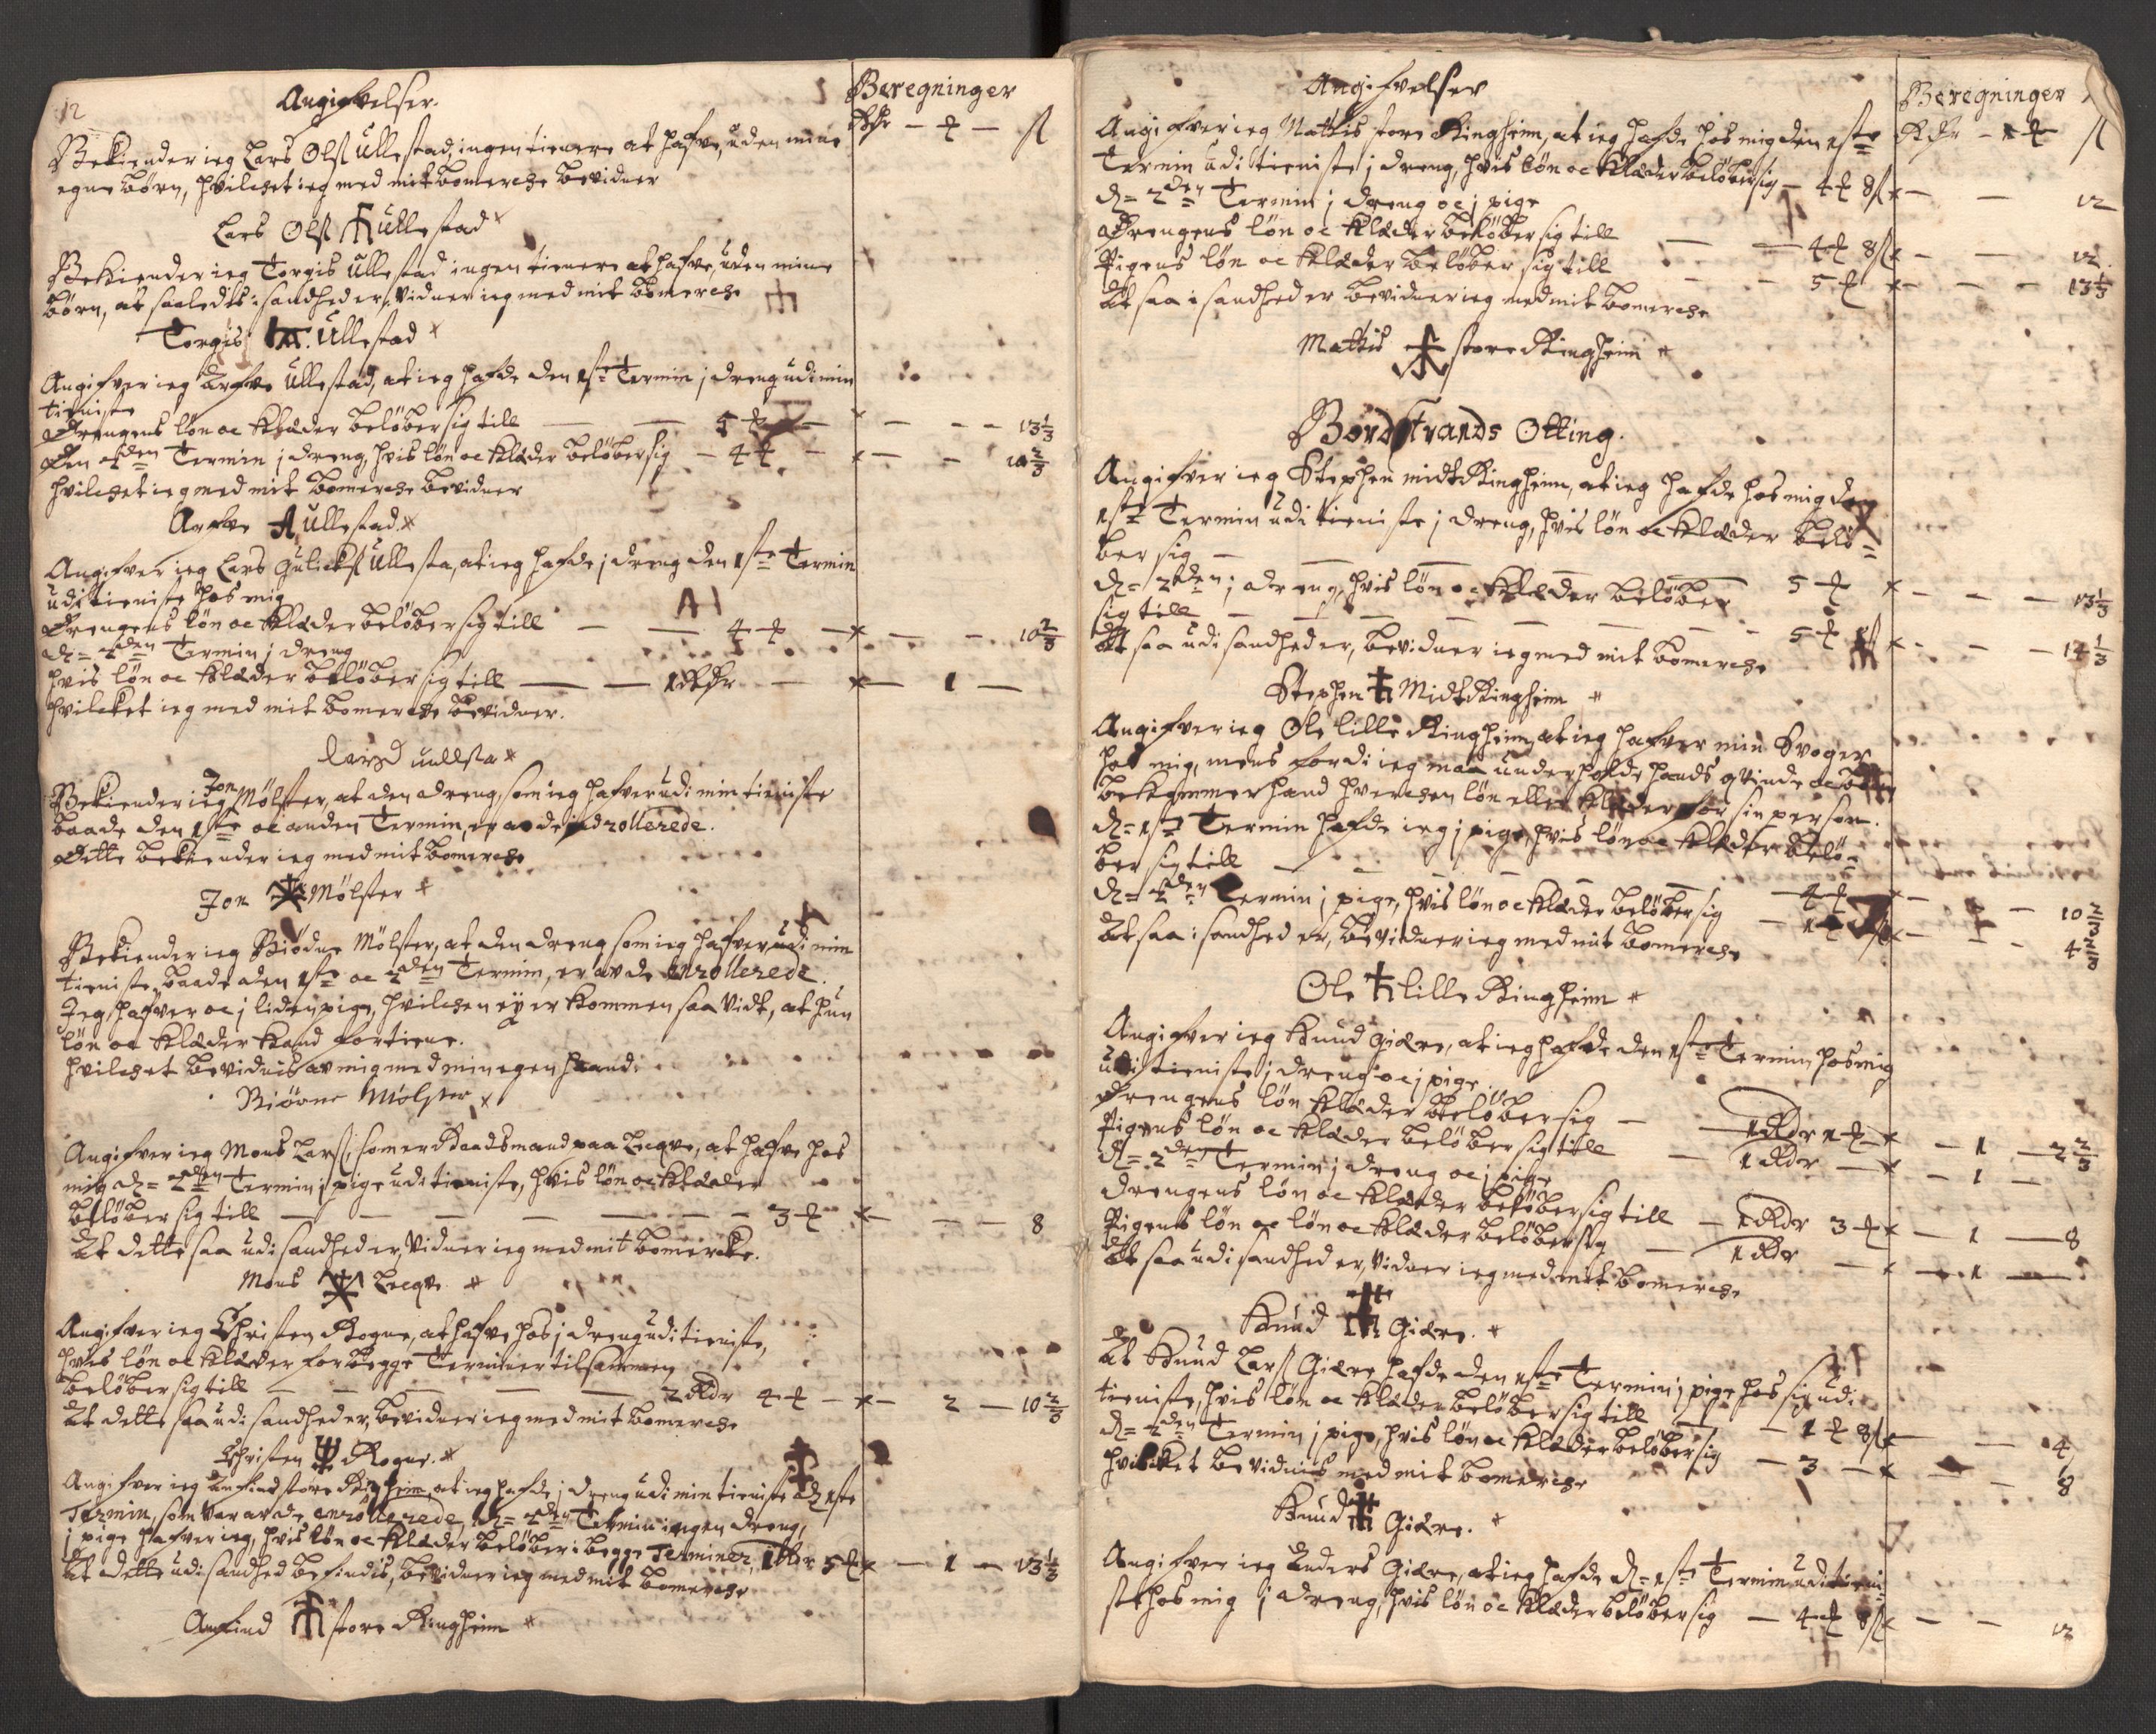 12
Angifvelser.
Beregninger
Rdr — ₰ — ſl
Bekiender ieg Lars Olsſ Ullestad, ingen tienere at hafve, uden mine
egne børn, hvilchet ieg med mit bomerche bevidner
Lars Olsſ Ullestad
Bekiender ieg Torgis Ullestad ingen tienere at hafve, uden mine
børn, at saaledis i sandhed er, vidner ieg med mit bomerche
Torgis Ullestad
Angifver ieg Arfve Ullestad, at ieg hafde den 1ste Termin j dreng udi min
tieniste
Drengens løn oc Klæder beløber sig till — — 5 ₰ — — — 13 1/3
Den 2den Termin j dreng, hvis løn oc Klæder beløber sig — 4 ₰ — — — 10 2/3
hvilchet ieg med mit bomerche bevidner
Arfve Ullestad
Angifver ieg Lars Gulichsſ Ullesta, at ieg hafde j dreng den 1ste Termin
udi tieniste hos mig
Drengens løn oc Klæder beløber sig till — — 4 ₰ — — — 10 2/3
d= 2den Termin j dreng
hvis løn oc Klæder beløber sig till — — 1 Rdr — — 1 —
hvilcket ieg med mit bomerche bevidner.
Lars ullesta
Bekiender ieg Jon Mølster, at den dreng, som ieg hafver udi min tieniste
baade den 1ste oc anden Termin, er av de indrollerede.
Dette bekiender ieg med mit bomerche
Jon Mølster
Bekiender ieg Biørne Mølster, at den dreng som ieg hafver udi min
tieniste baade den 1ste oc 2den Termin, er av de enrollerede.
Jeg hafver oc j liden pige, hvilchen ey er kommen saa vidt, at hun
løn oc Klæder kand fortiene.
hvilchet bevidnis av mig med min egen haand.
Biørne Mølster
Angifver ieg Mons Larsſ, som er Raadsmand paa Lecqve, at hafve hos
mig d= 2den Termin j pige udi tieniste, hvis løn oc Klæder
beløber sig till — — — — 3 ₰ — — — 8
At dette saa udi sandhed er, vidner ieg med mit bomercke.
Mons Lecqve
Angifver ieg Christen Rogne, at hafve hos j dreng udi tieniste,
hvis løn oc Klæder for begge Terminer tilsammen
beløber sig till — — — — 2 Rdr 4 ₰ — — 2 — 10 2/3
At dette saa udi sandhed er, bevidner ieg med mit bomerche
Christen Rogne.
Angifver ieg Anfind store Ringheim, at ieg hafde j dreng udi min tieniste d= 1ste
Termin, som var av de enrollerede, d= 2den Termin ingen dreng,
j pige hafver ieg, hvis løn oc Klæder beløber i begge Terminer, 1 Rdr 5 ₰ — 1 — 13 1/3
At dette udi sandhed befindis, bevidner ieg med mit bomerche
Anfind store Ringheim
Angifvelser
Beregninger
Rdr — ₰ ſl
Angifver ieg Mattis store Ringheim, at ieg hafde hos mig den 1ste
Termin udi tieniste j dreng, hvis løn oc Klæder beløber sig — 4 ₰ 8 ſl — — 12
d= 2den Termin j dreng oc j pige
Drengens løn oc Klæder beløber sig till — — 4 ₰ 8 ſl — — 12
Pigens løn oc Klæder beløber sig till — — 5 ₰ — — — 13 1/3
At saa i sandhed er bevidner ieg med mit bomerche
Mattis store Ringheim
Bordstrands Otting.
Angifver ieg Stephen midt Ringheim, at ieg hafde hos mig den
1ste Termin udi tieniste j dreng, hvis løn oc Klæder belø=
ber sig — — — — 5 ₰ — — — 13 1/3
d= 2den j dreng, hvis løn oc Klæder beløber
sig till — — — — — 5 ₰ 1 ſl — — — 14 1/3
At saa udi sandhed er, bevidner ieg med mit bomerche
Stephen Midt Ringheim
Angifver ieg Ole lille Ringheim, at ieg hafver min Svoger
hos mig, mens fordi ieg maa underholde hands qvinde oc børn
bekommer hand hverchen løn eller Klæder for sin person.
d= 1ste Termin hafde ieg j pige, hvis løn oc Klæder belø=
ber sig till — — — — 4 ₰ — — 10 2/3
d= 2den Termin j pige, hvis løn oc Klæder beløber sig — 1 ₰ — — 4 2/3
At saa i sandhed er, bevidner ieg med mit bomerche
Ole lille Ringheim
Angifver ieg Knud Giære, at ieg hafde den 1ste Termin hos mig
udi tieniste j dreng oc j pige
Drengens løn Klæder beløber sig — — 1 Rdr 1 ₰ — 1 — 2 2/3
Pigens løn oc Klæder beløber sig till — 1 Rdr — — 1 —
d= 2den Termin j dreng oc j pige
Drengens løn oc Klæder beløber sig till — 1 Rdr 3 ₰ — 1 — 8
Pigens løn oc løn oc Klæder beløber sig — 1 Rdr — — 1 —
At saa udi sandhed er, vidner ieg med mit bomerche
Knud Giære.
At Knud Larsſ Giære hafde den 1ste Termin j pige hos sig udi
tieniste, hvis løn oc Klæder beløber sig till — 1 ₰ 8 ſl — — 4
d= 2den Termin j pige, hvis løn oc Klæder beløber sig — 3 — — — 8
hvilcket bevidnis med mit bomerche
Knud Giære.
Angifver ieg Anders Giære, at ieg hafde d= 1ste Termin udi tieni=
ste hos mig j dreng, hvis løn oc Klæder beløber sig — 4 ₰ 8 ſl — — 12